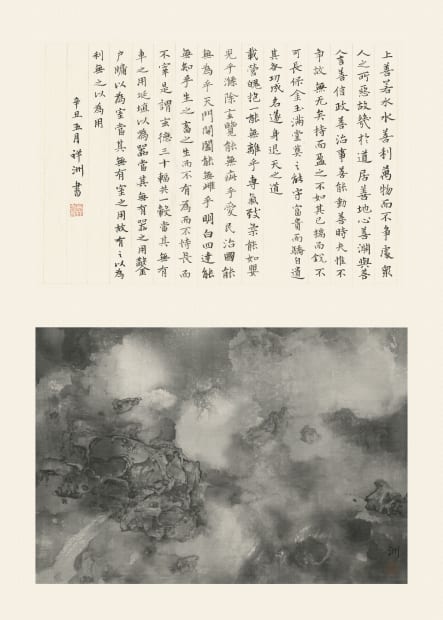 上善若水水善利萬物而不爭處眾
人之所惡故幾於道居善地心善淵與善
人言善信政善治事善能動善時夫惟不
爭故無尤矣持而盈之不如其已揣而銳不
可長保金玉滿堂莫之能守富貴而驕自遺
其咎功成名遂身退天之道
載營魄抱一能無離乎專氣致柔能如嬰
兒乎滌除玄覽能無疵乎愛民治國能
無為乎天門開闔能無雌乎明白四達能
無知乎生之畜之生而不有為而不恃長而
不宰是謂玄德三十輻共一轂當其無有
車之用埏埴以為器當其無有器之用鑿
戶牖以為室當其無有室之用故有之以為
利無之以為用
辛丑五月祥洲書
洲